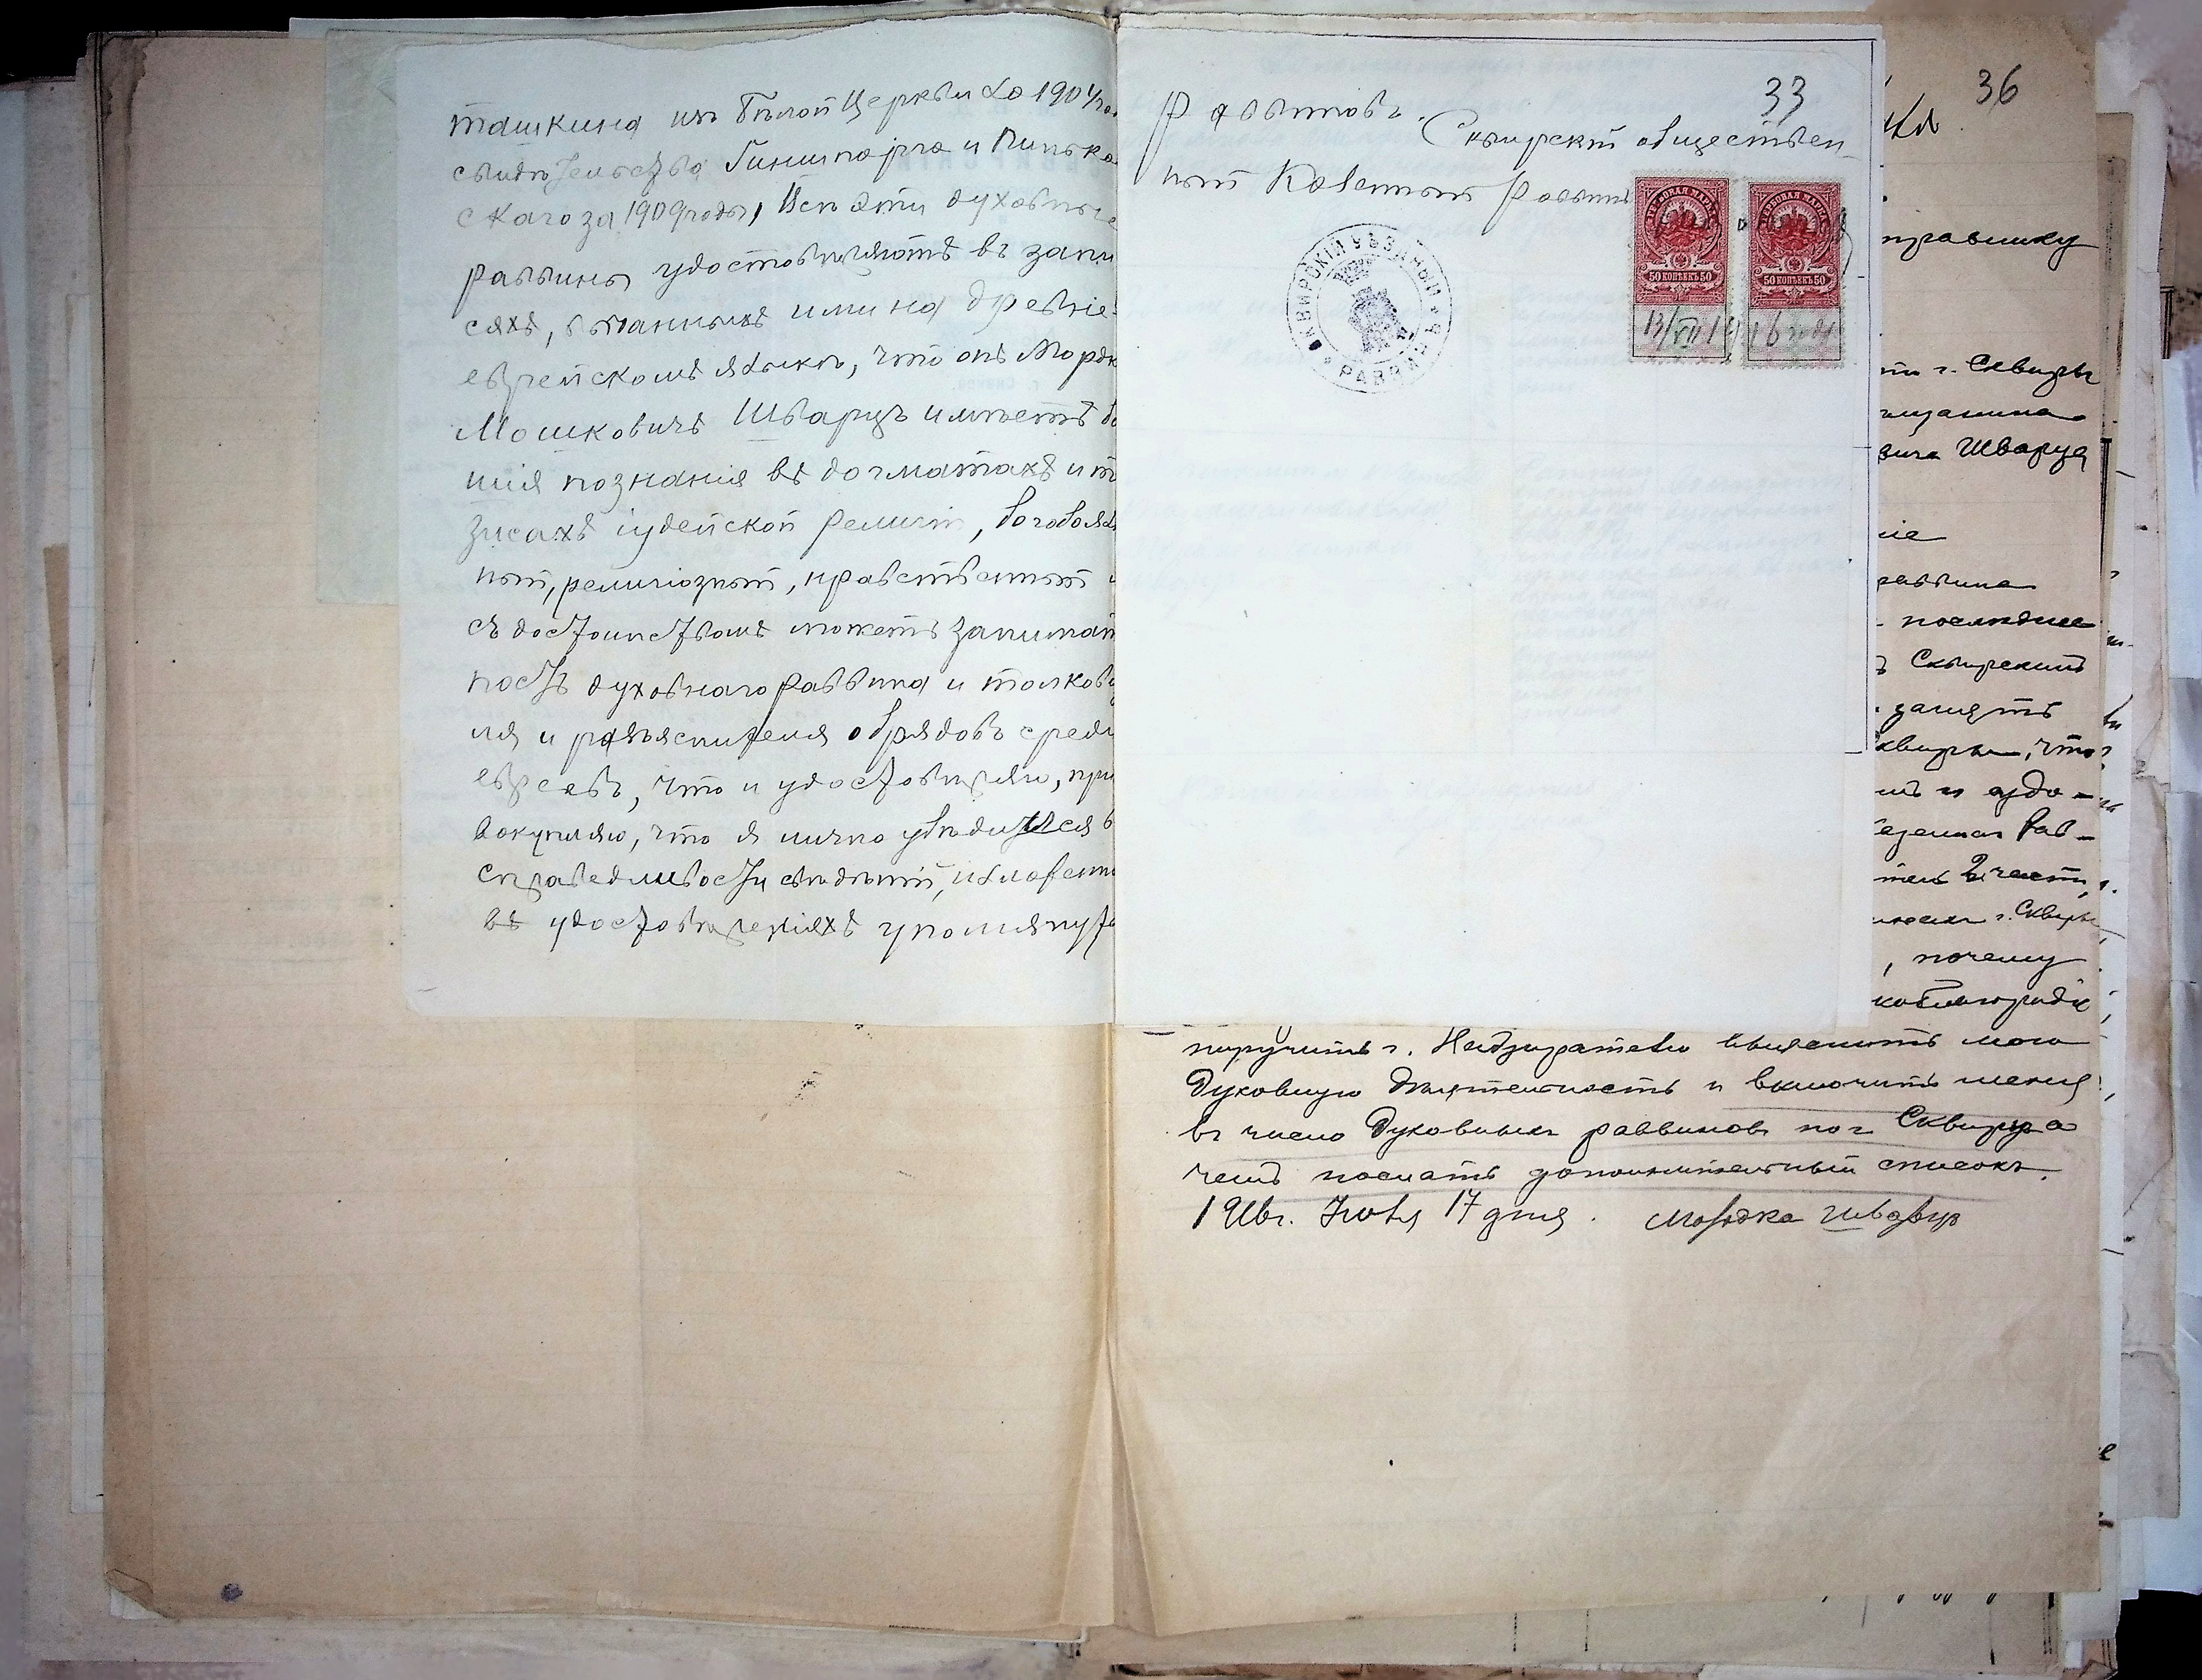 ташкина изъ Бѣлой Церкви до 1904 го
свидѣтельства Гинцпарга и Пинька
скаго за 1909 годъ, Всѣ эти духовные
раввины удостовѣряютъ въ запи
сяхъ, выданныхъ ими на древне-
еврейскомъ языкѣ, что онъ Мордк
Мошковичъ Шварцъ имѣетъ бо
шія познанія въ догматахъ и т
зисахъ іудейской религіи, богобояз
ный, религіозный, нравственный и
съ достоинствомъ можетъ занимат
постъ духовнаго раввина и толкова
ля и разъяснителя обрядовъ среди
евреевъ, что и удостовѣряю, при
вокупляю, что я лично убѣдился в
справедливости свѣдѣній, изложенн
въ удостовѣреніяхъ упомянуты
33
Раввиновъ. Сквирскій обществен-
ный Казенный Раввинъ
СКВИРСКІЙ УѢЗДНЫЙ РАВВИНЪ
ГЕРБОВАЯ МАРКА
50 КОПѢЕКЪ 50
ГЕРБОВАЯ МАРКА
50 КОПѢЕКЪ 50
13/VII 1916 года
36
правнику
г. Сквиры
ѣщанина
вича Шварца
ніе
раввина
послѣднее
Сквирскій
занять
Сквиры, что
и удо-
Рав-
2 части
г. Сквиры
, почему
поручить г. Надзирателю выяснить мою
духовную дѣятельность и включить меня
въ число духовныхъ раввиновъ по г Сквира
чемъ послать дополнительный списокъ.
1916г. Іюля 17 дня. Мордка Шварцъ